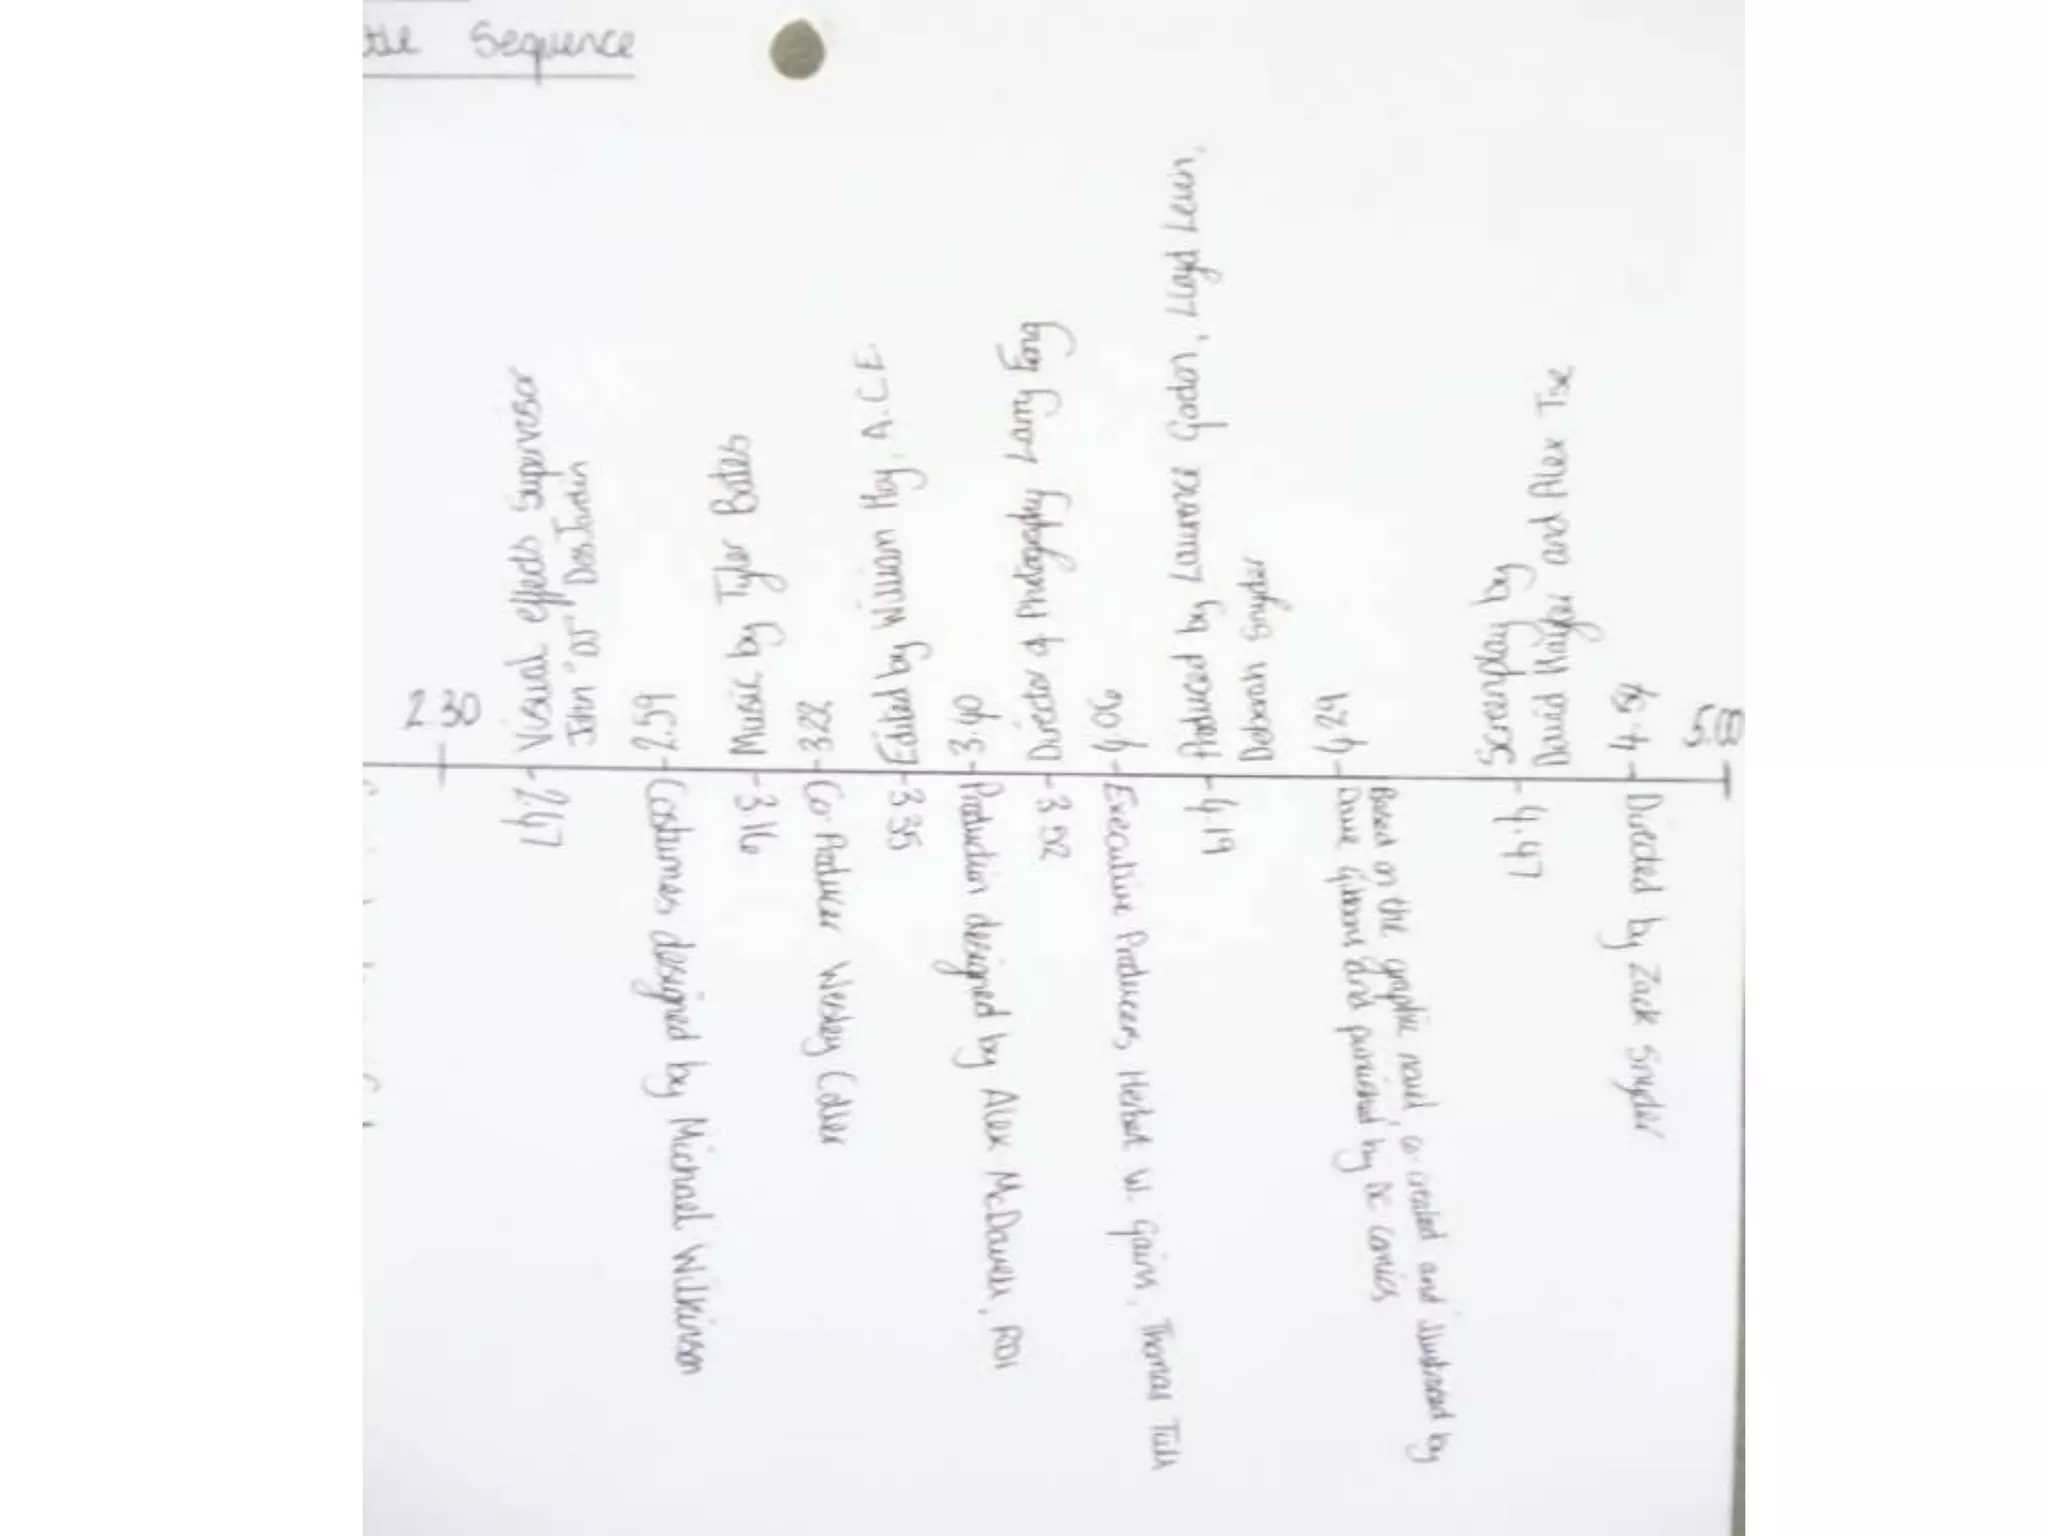 Sequence
2.30
Visual effects Supervisor
John "DJ" DesJardin
2.47
2.59
Costumes designed by Michael Wilkinson
Music by Tyler Bates
3.16
3.22
Co-Producer Wesley Coller
Edited by William Hoy, A.C.E.
3.35
3.40
Production designed by Alex McDowell, RDI
Director of Photography Larry Fong
3.52
4.06
Executive Producers Herbert W. Gains, Thomas Tull
Produced by Laurence Gordon, Lloyd Levin,
Deborah Snyder
4.19
4.29
Based on the graphic novel, co-created and illustrated by
Dave Gibbons and published by DC comics
Screenplay by
David Hayter and Alex Tse
4.47
4.54
Directed by Zack Snyder